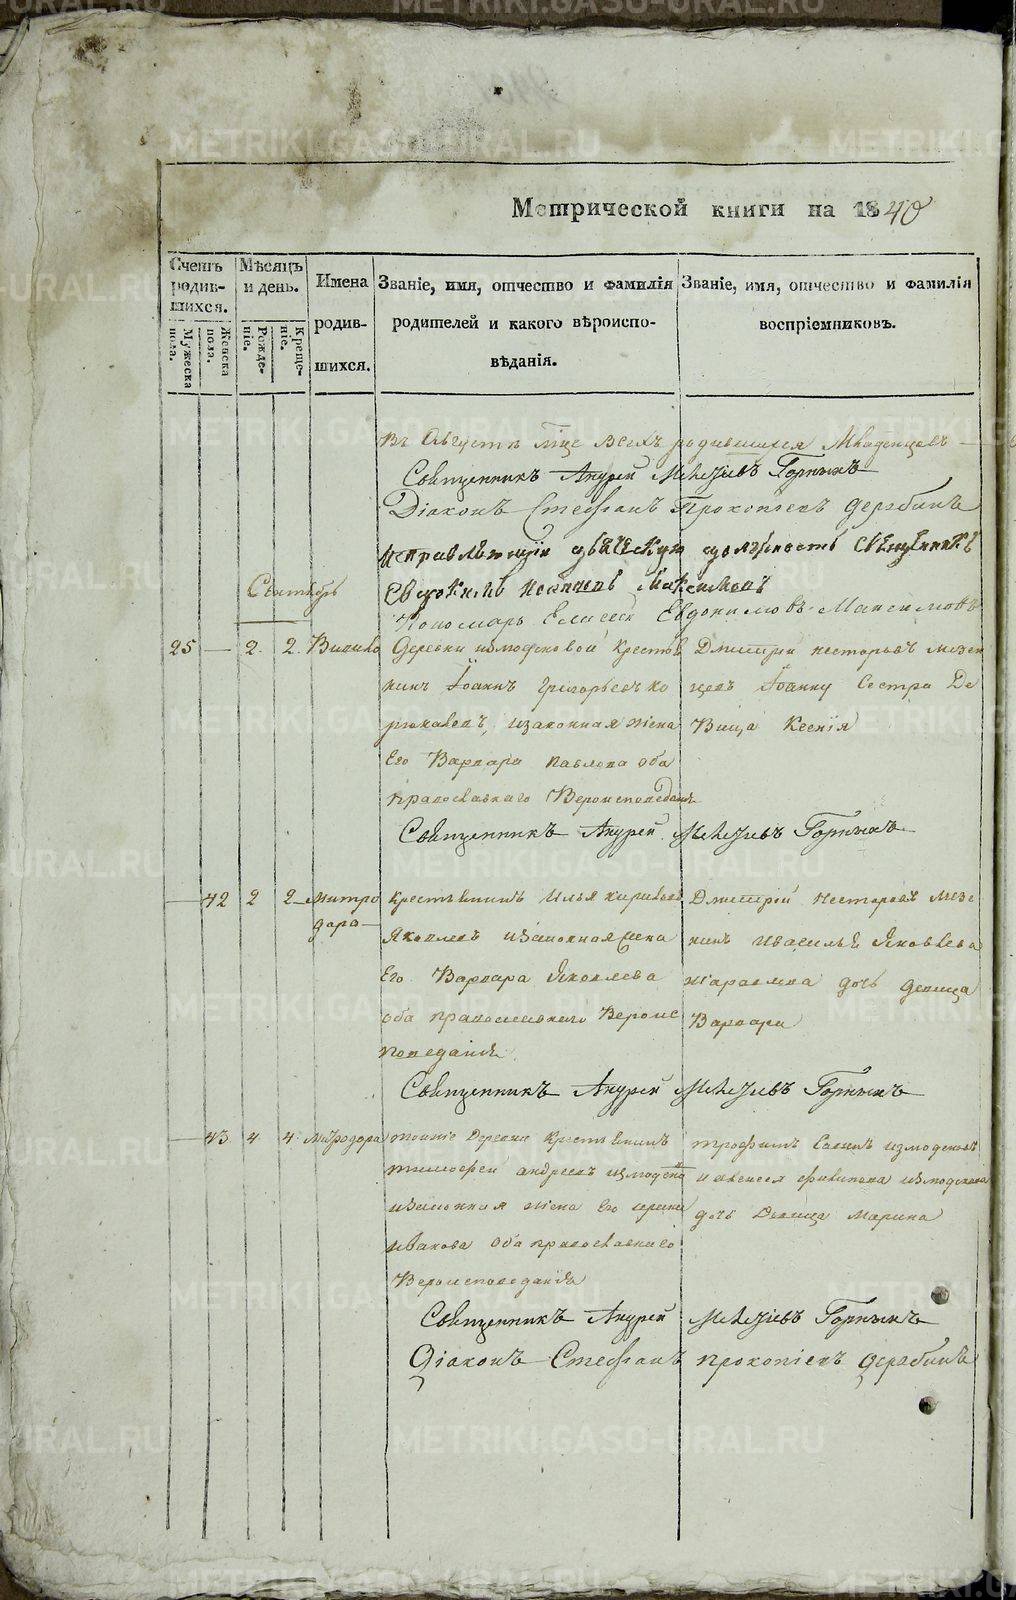 METRIKI.GASO-URAL.RU
Метрической книги на 1840
Счетъ родившихся.
Мужеска пола.
Женска пола.
Мѣсяцъ и день.
Рожденіе.
Крещеніе.
Имена родившихся.
Званіе, имя, отчество и фамилія родителей и какого вѣроисповѣданія.
Званіе, имя, отчество и фамилія воспріемниковъ.
въ Августѣ всехъ родившихся Младенцовъ
Священникъ Андрей Горныхъ
Діаконъ Стефанъ Прокопіевъ Дерябинъ
исправляющій должность священникъ
Пономарь Елисей Евдокимовъ Максимовъ
Сентябрь
25 — 2. 2.
Деревни измоденовой Крестья
нинъ Іоаннъ Григорьевъ Ко
изаконная жена
Его Варвара Павлова оба
православнаго Вероисповеданія
Дмитрій несторовъ мизен
цовъ Іоанну Сестра Де
вица Ксенія
Священникъ Андрей Горныхъ
— 42 2 2
Митро
дора
Крестьянинъ Илья кириловъ
Яковлевъ изаконная жена
Его Варвара Яковлева
оба православнаго Вероис
поведанія
Дмитрій Несторовъ мизе
нинъ Яковлева
дочь девица
Варвара
Священникъ Андрей Горныхъ
— 43 4 4
Митродора
тоиже Деревни Крестьянинъ
тимофей андреевъ измоденовъ
изаконная жена Его ирина
иванова оба православнаго
Вероисповеданія
трофимъ Саввинъ измоденовъ
филипова измоденова
дочь Девица Марина
Священникъ Андрей Горныхъ
Діаконъ Стефанъ прокопіевъ Дерябинъ